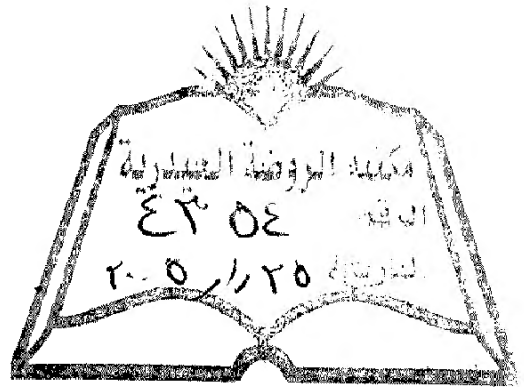 مكتبة الروضة الحيدرية
الرقم ٤٣٥٤
التاريخ ٢٥